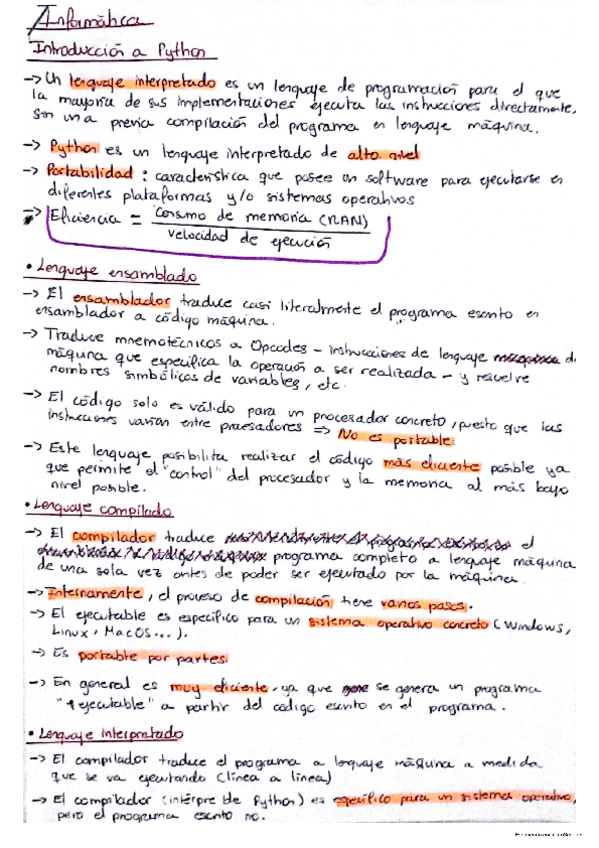 Informática
Introducción a Python
-> Un lenguaje interpretado es un lenguaje de programación para el que
la mayoría de sus implementaciones ejecuta las instrucciones directamente,
sin una previa compilación del programa en lenguaje máquina.
-> Python es un lenguaje interpretado de alto nivel
-> Portabilidad : característica que posee un software para ejecutarse en
diferentes plataformas y/o sistemas operativos
-> Eficiencia = Consumo de memoria (RAM)
velocidad de ejecución
• Lenguaje ensamblado
-> El ensamblador traduce casi literalmente el programa escrito en
ensamblador a código máquina.
-> Traduce mnemotécnicos a Opcodes - instrucciones de lenguaje de
máquina que especifica la operación a ser realizada - y resuelve
nombres simbólicos de variables, etc.
-> El código solo es válido para un procesador concreto, puesto que las
instrucciones varían entre procesadores => No es portable.
-> Este lenguaje posibilita realizar el código más eficiente posible ya
que permite el "control" del procesador y la memoria al más bajo
nivel posible.
• Lenguaje compilado
-> El compilador traduce el
programa completo a lenguaje máquina
de una sola vez antes de poder ser ejecutado por la máquina.
-> Internamente, el proceso de compilación tiene varios pasos.
-> El ejecutable es específico para un sistema operativo concreto (Windows,
Linux, MacOS...).
-> Es portable por partes.
-> En general es muy eficiente, ya que se genera un programa
"ejecutable" a partir del código escrito en el programa.
• Lenguaje interpretado
-> El compilador traduce el programa a lenguaje máquina a medida
que se va ejecutando (línea a línea)
-> El compilador (intérpre de Python) es específico para un sistema operativo,
pero el programa escrito no.